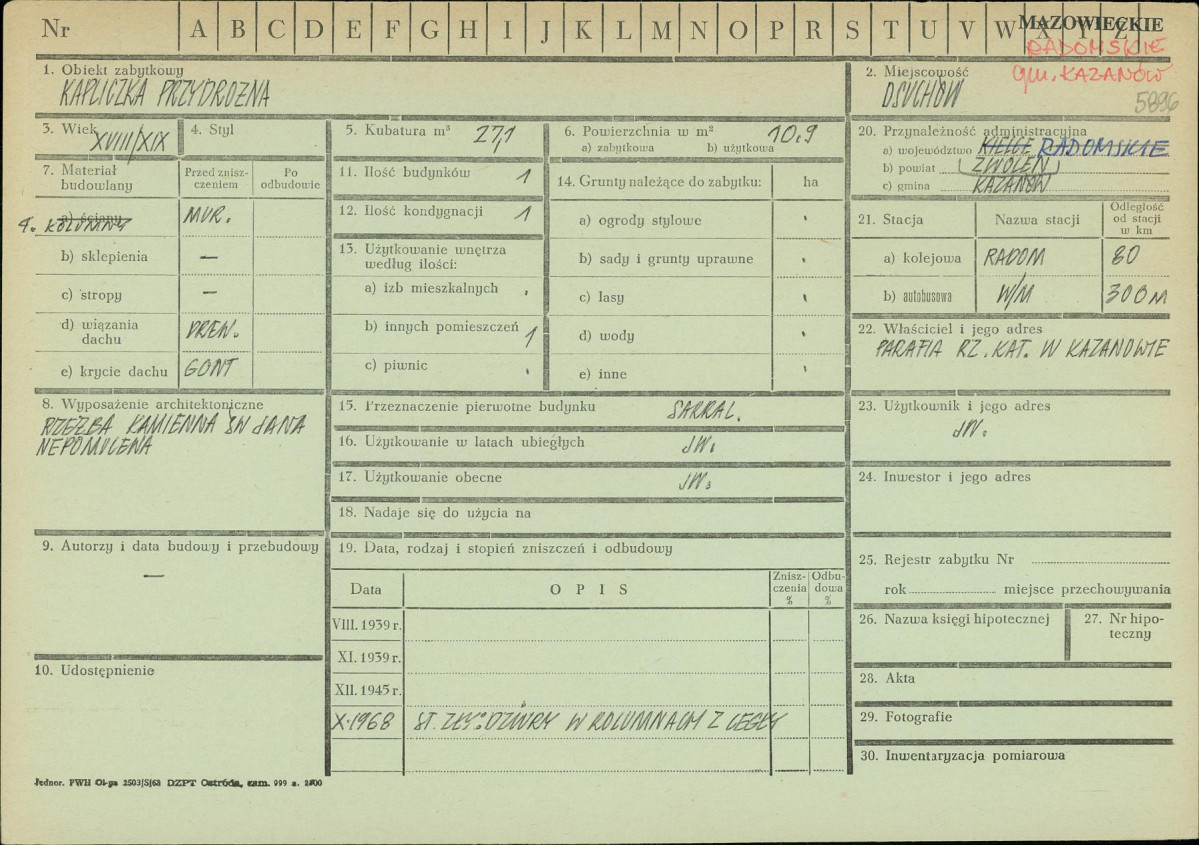 Nr A B C D E F G H I J K L M N O P R S T U V W X Y Z MAZOWIECKIE
RADOMSKIE
gm. KAZANÓW
5896
1. Obiekt zabytkowy
KAPLICZKA PRZYDROŻNA
2. Miejscowość
OSUCHÓW
3. Wiek XVIII/XIX
4. Styl
5. Kubatura m³ 27,1
6. Powierzchnia w m² 10,9
a) zabytkowa b) użytkowa
7. Materiał budowlany
Przed zniszczeniem
Po odbudowie
a) ściany MUR.
a. KOLUMNY
b) sklepienia —
c) stropy —
d) wiązania dachu DREW.
e) krycie dachu GONT
8. Wyposażenie architektoniczne
RZEŹBA KAMIENNA ŚW JANA
NEPOMUCENA
9. Autorzy i data budowy i przebudowy
—
10. Udostępnienie
11. Ilość budynków 1
12. Ilość kondygnacji 1
13. Użytkowanie wnętrza
według ilości:
a) izb mieszkalnych
b) innych pomieszczeń 1
c) piwnic
14. Grunty należące do zabytku: ha
a) ogrody stylowe
b) sady i grunty uprawne
c) lasy
d) wody
e) inne
15. Przeznaczenie pierwotne budynku SAKRAL.
16. Użytkowanie w latach ubiegłych JW.
17. Użytkowanie obecne JW.
18. Nadaje się do użycia na
19. Data, rodzaj i stopień zniszczeń i odbudowy
Data OPIS Zniszczenia % Odbudowa %
VIII. 1939 r.
XI. 1939 r.
XII. 1945 r.
X.1968 ST. ZŁY: DZIURY W KOLUMNACH Z CEGŁY
20. Przynależność administracyjna
a) województwo KIELCE RADOMSKIE
b) powiat ZWOLEŃ
c) gmina KAZANÓW
21. Stacja Nazwa stacji Odległość od stacji w km
a) kolejowa RADOM 60
b) autobusowa W/M 300 M
22. Właściciel i jego adres
PARAFIA RZ. KAT. W KAZANOWIE
23. Użytkownik i jego adres
JW.
24. Inwestor i jego adres
25. Rejestr zabytku Nr
rok miejsce przechowywania
26. Nazwa księgi hipotecznej
27. Nr hipoteczny
28. Akta
29. Fotografie
30. Inwentaryzacja pomiarowa
Jednor. PWH Ol-ga 2503/S/68 DZPT Ostróda, zam. 999 n. 2500